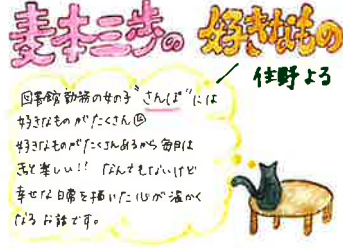 麦本三歩の 好きなもの
住野よる
図書館勤務の女の子"さんぽ"には
好きなものがたくさん
好きなものがたくさんあるから毎日は
きっと楽しい!! なんでもないけど
幸せな日常を描いた心が温かく
なるお話です。